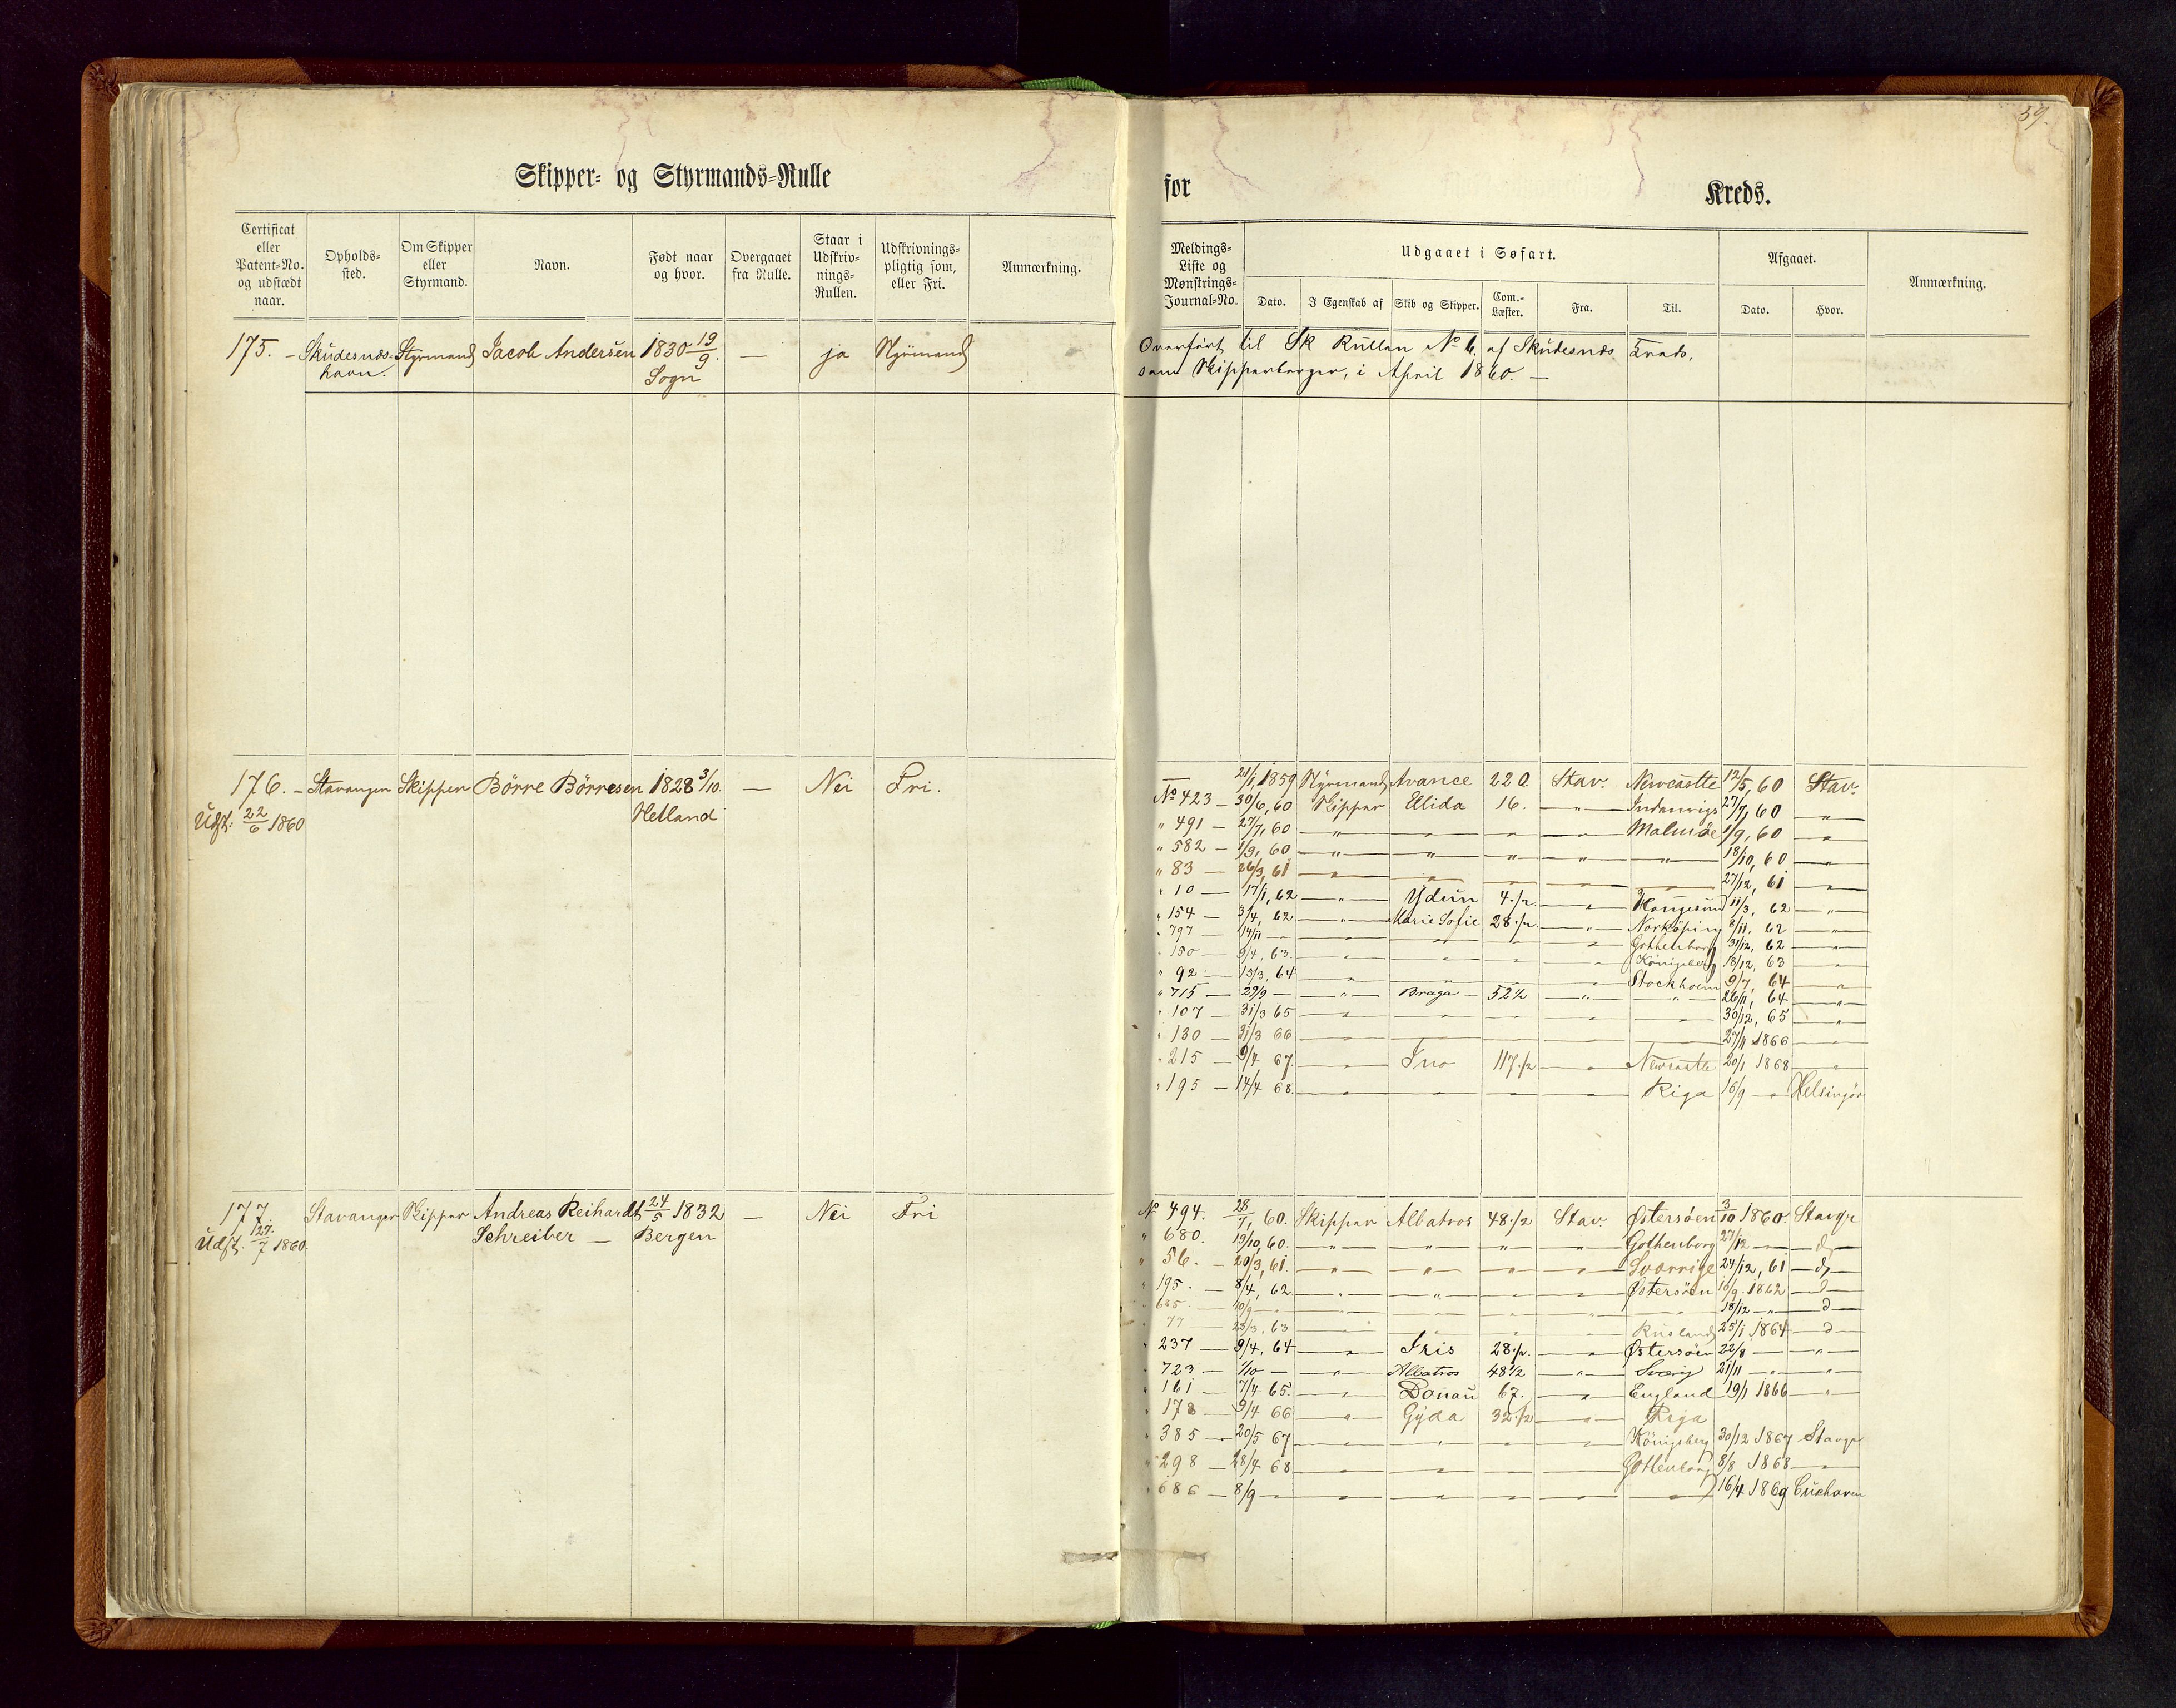 59.
Skipper- og Styrmands-Rulle
for
Kreds.
Certificat eller Patent-No. og udstædt naar.
Opholds-sted.
Om Skipper eller Styrmand.
Navn.
Født naar og hvor.
Overgaaet fra Rulle.
Staar i Udskriv-nings-Rullen.
Udskrivnings-pligtig som, eller Fri.
Anmærkning.
Meldings-Liste og Mønstrings-Journal-No.
Udgaaet i Søfart.
Dato. I Egenskab af Skib og Skipper. Com.-Læster. Fra. Til.
Afgaaet.
Dato. Hvor.
Anmærkning.
175. - Skudesnæs- Styrmand Jacob Andersen 1830 19/9. — ja Styrmand
havn. Sogn
Overført til Sk Rullen No 6. af Skudesnæs Kreds,
som Skipperborger, i April 1860. —
176. - Stavanger Skipper Børre Børresen 1828 3/10. — Nei Fri.
Udst: 22/6 1860 Hetland
— 21/1, 1859 Styrmand Avance 220. Stav. Newcastle 12/5, 60 Stav.
No 423 — 30/6, 60 Skipper Elida 16. — " — Indenrigs 27/7, 60 — " —
" 491 — 27/7, 60 — " — — " — — " — — " — Malmöe 1/9, 60 — " —
" 582 — 1/9, 60 — " — — " — — " — — " — — " — 18/10, 60 — " —
" 83 — 26/3, 61 — " — — " — — " — — " — — " — 27/12, 61 — " —
" 10 — 17/1, 62 — " — Ydun 4.1/2 — " — Haugesund 11/3, 62 — " —
" 154 — 3/4, 62 — " — Marie Sofie 28.1/2 — " — Norköping 8/11, 62 — " —
" 797 — 14/11 — — " — — " — — " — — " — Gothenborg 31/12, 62 — " —
" 150 — 9/4, 63. — " — — " — — " — — " — Königsberg 18/12, 63 — " —
" 92 — 13/3, 64 — " — — " — — " — — " — Stockholm 9/7, 64 — " —
" 715 — 29/9 — — " — Braga — 52 1/2 — " — — " — 26/11, 64 — " —
" 107 — 31/3 65 — " — — " — — " — — " — — " — 30/12, 65 — " —
" 130 — 31/3 66 — " — — " — — " — — " — — " — 27/11 1866 — " —
" 215 — 9/4 67. — " — Ino 117.1/2 — " — Newcastle 20/1 1868 — " —
" 195 — 14/4 68. — " — — " — — " — — " — Riga 16/9 — " — Helsingør
177. Stavanger Skipper Andreas Reihardt 24/5 1832 — Nei Fri
Udst. 27/7 1860. Schreiber — Bergen
No 494. 28/7, 60. Skipper Albatros 48.1/2 Stav. Østersøen 3/10 1860. Stavgr
" 680. 19/10, 60. — " — — " — — " — — " — Gothenborg 27/12 — " — — d —
" 56. — 20/3, 61. — " — — " — — " — — " — Sverrige 24/12, 61 — d —
" 195. — 8/4, 62 — " — — " — — " — — " — Østersøen 10/9. 1862 — d —
" 10/9 — " — — " — — " — — " — — " — — " — 18/12 — " — — d —
" 77 — 23/3, 63 — " — — " — — " — — " — Rusland 25/1 1864 — d —
" 237 — 9/4, 64 — " — Iris 28.1/2. — " — Østersøen 22/8 — — " —
" 723. — 1/10 — — " — Albatros 48 1/2 — " — Sverig 21/11 — " — — " —
" 161 — 7/4 65. — " — Donau 67. — " — England 19/1 1866 — " —
" 178 — 9/4 66 — " — Gyda 32.1/2 — " — Riga
" 385 — 20/5 67 — " — — " — — " — — " — Königsberg 30/12 1867 Stavgr
" 298 — 28/4 68 — " — — " — — " — — " — Gottenborg 8/8 1868 — " —
" 686 — 8/9 — " — — " — — " — — " — — " — — " — 16/4 1869 Cuxhaven